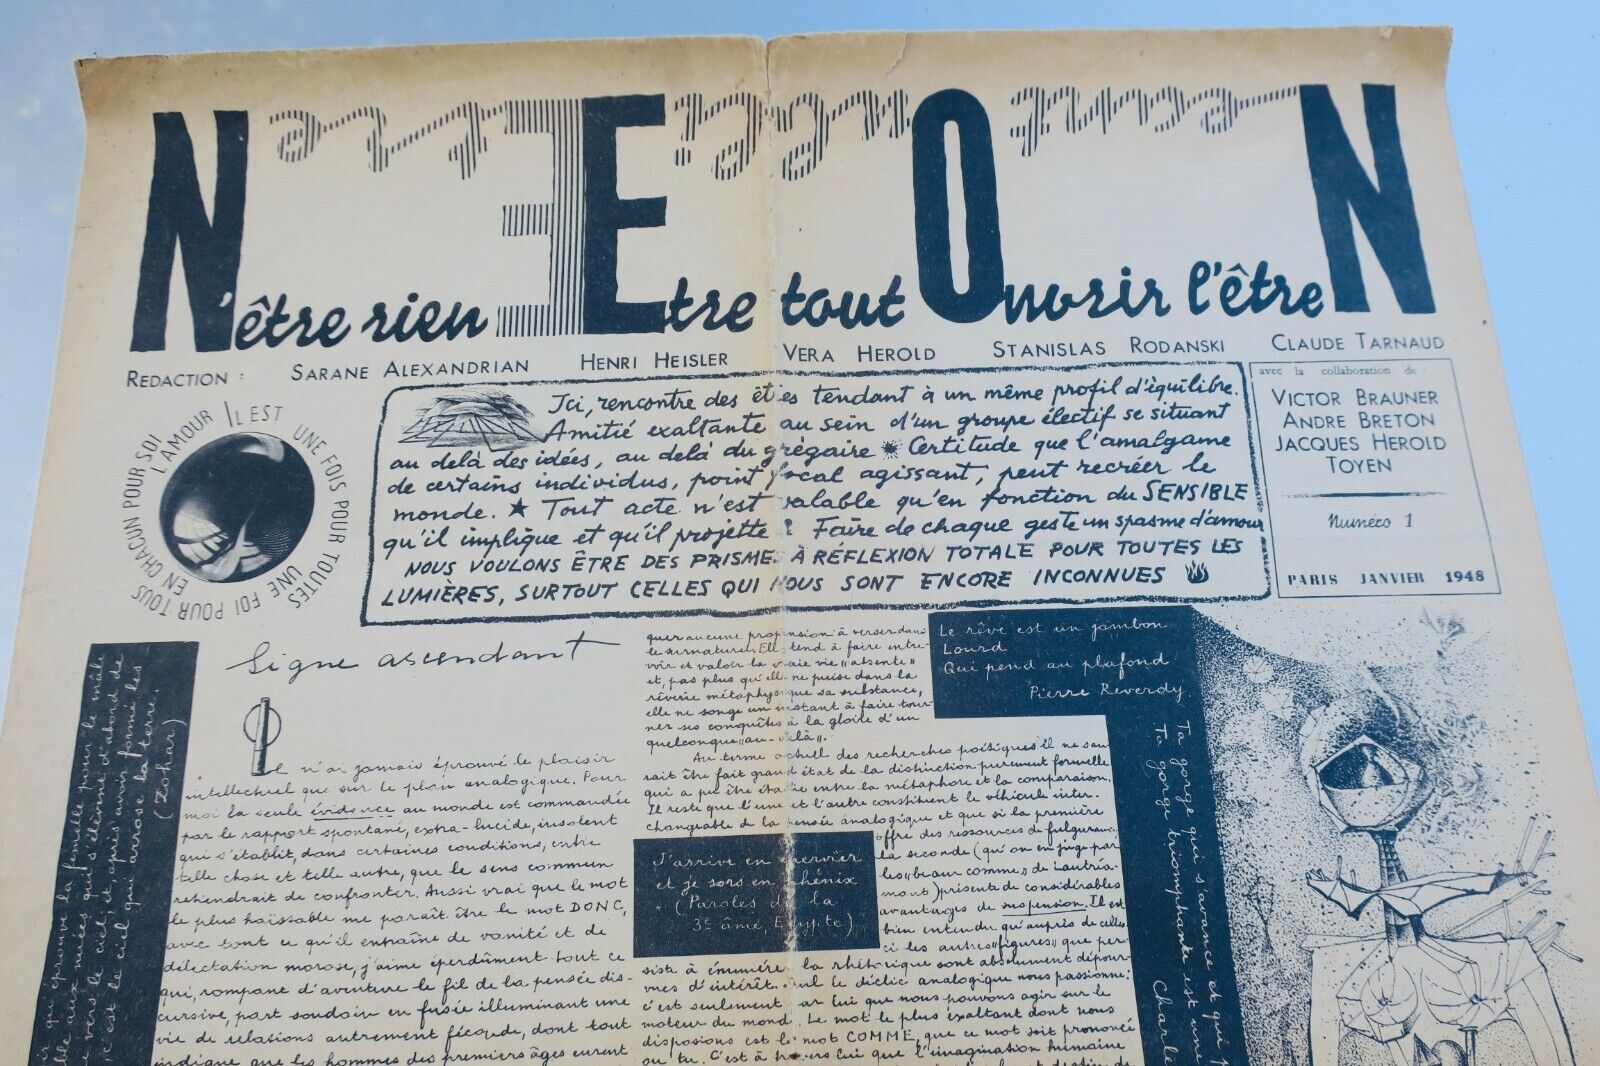 N E O N
N'être rien Etre tout Ouvrir l'être
REDACTION : SARANE ALEXANDRIAN HENRI HEISLER VERA HEROLD STANISLAS RODANSKI CLAUDE TARNAUD
IL EST UNE FOIS POUR TOUTES
UNE FOI POUR TOUS
EN CHACUN POUR SOI
L'AMOUR
Ici, rencontre des êtres tendant à un même profil d'équilibre.
Amitié exaltante au sein d'un groupe électif se situant
au delà des idées, au delà du grégaire ✷ Certitude que l'amalgame
de certains individus, point focal agissant, peut recréer le
monde. ★ Tout acte n'est valable qu'en fonction du SENSIBLE
qu'il implique et qu'il projette Faire de chaque geste un spasme d'amour
NOUS VOULONS ÊTRE DES PRISMES À RÉFLEXION TOTALE POUR TOUTES LES
LUMIÈRES, SURTOUT CELLES QUI NOUS SONT ENCORE INCONNUES
avec la collaboration de :
VICTOR BRAUNER
ANDRE BRETON
JACQUES HEROLD
TOYEN
Numéro 1
PARIS JANVIER 1948
qui éprouve la femelle pour le mâle
aux nuées qui s'élèvent d'abord de
vers le ciel, et après avoir formé les
c'est le ciel qui arrose la terre.
(Zohar)
Signe ascendant
Je n'ai jamais éprouvé le plaisir
intellectuel que sur le plan analogique. Pour
moi la seule évidence au monde est commandée
par le rapport spontané, extra-lucide, insolent
qui s'établit, dans certaines conditions, entre
telle chose et telle autre, que le sens commun
retiendrait de confronter. Aussi vrai que le mot
le plus haïssable me paraît être le mot DONC,
avec tout ce qu'il entraîne de vanité et de
délectation morose, j'aime éperdûment tout ce
qui, rompant d'aventure le fil de la pensée dis-
cursive, part soudain en fusée illuminant une
vie de relations autrement féconde, dont tout
indique que les hommes des premiers âges eurent
quer aucune propension à verser dans
le surnaturel. Elle tend à faire entre-
voir et valoir la vraie vie "absente"
et, pas plus qu'elle ne puise dans la
rêverie métaphysique sa substance,
elle ne songe un instant à faire tour-
ner ses conquêtes à la gloire d'un
quelconque "au-delà".
Au terme actuel des recherches poétiques il ne sau-
rait être fait grand état de la distinction purement formelle
qui a pu être établie entre la métaphore et la comparaison.
Il reste que l'une et l'autre constituent le véhicule inter-
changeable de la pensée analogique et que si la première
offre des ressources de fulgurance
la seconde (qu'on en juge par
les "beau comme" de Lautréa-
mont) présente de considérables
avantages de suspension. Il est
bien entendu qu'auprès de celles
ci les autres "figures" que per-
siste à énumérer la rhétorique sont absolument dépour-
vues d'intérêt. Seul le déclic analogique nous passionne:
c'est seulement par lui que nous pouvons agir sur le
moteur du monde. Le mot le plus exaltant dont nous
disposions est le mot COMME, que ce mot soit prononcé
ou tu. C'est à travers lui que l'imagination humaine
J'arrive en épervier
et je sors en phénix
(Paroles de la
3e âme, Egypte)
Le rêve est un jambon
Lourd
Qui pend au plafond
Pierre Reverdy.
Ta gorge qui s'avance et qui
Ta gorge triomphante est une
Charle